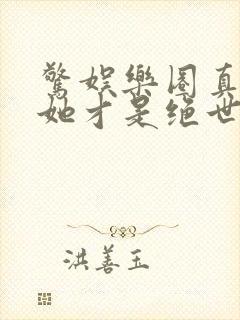 驚娱樂圈真
她才是绝世
洪善玉